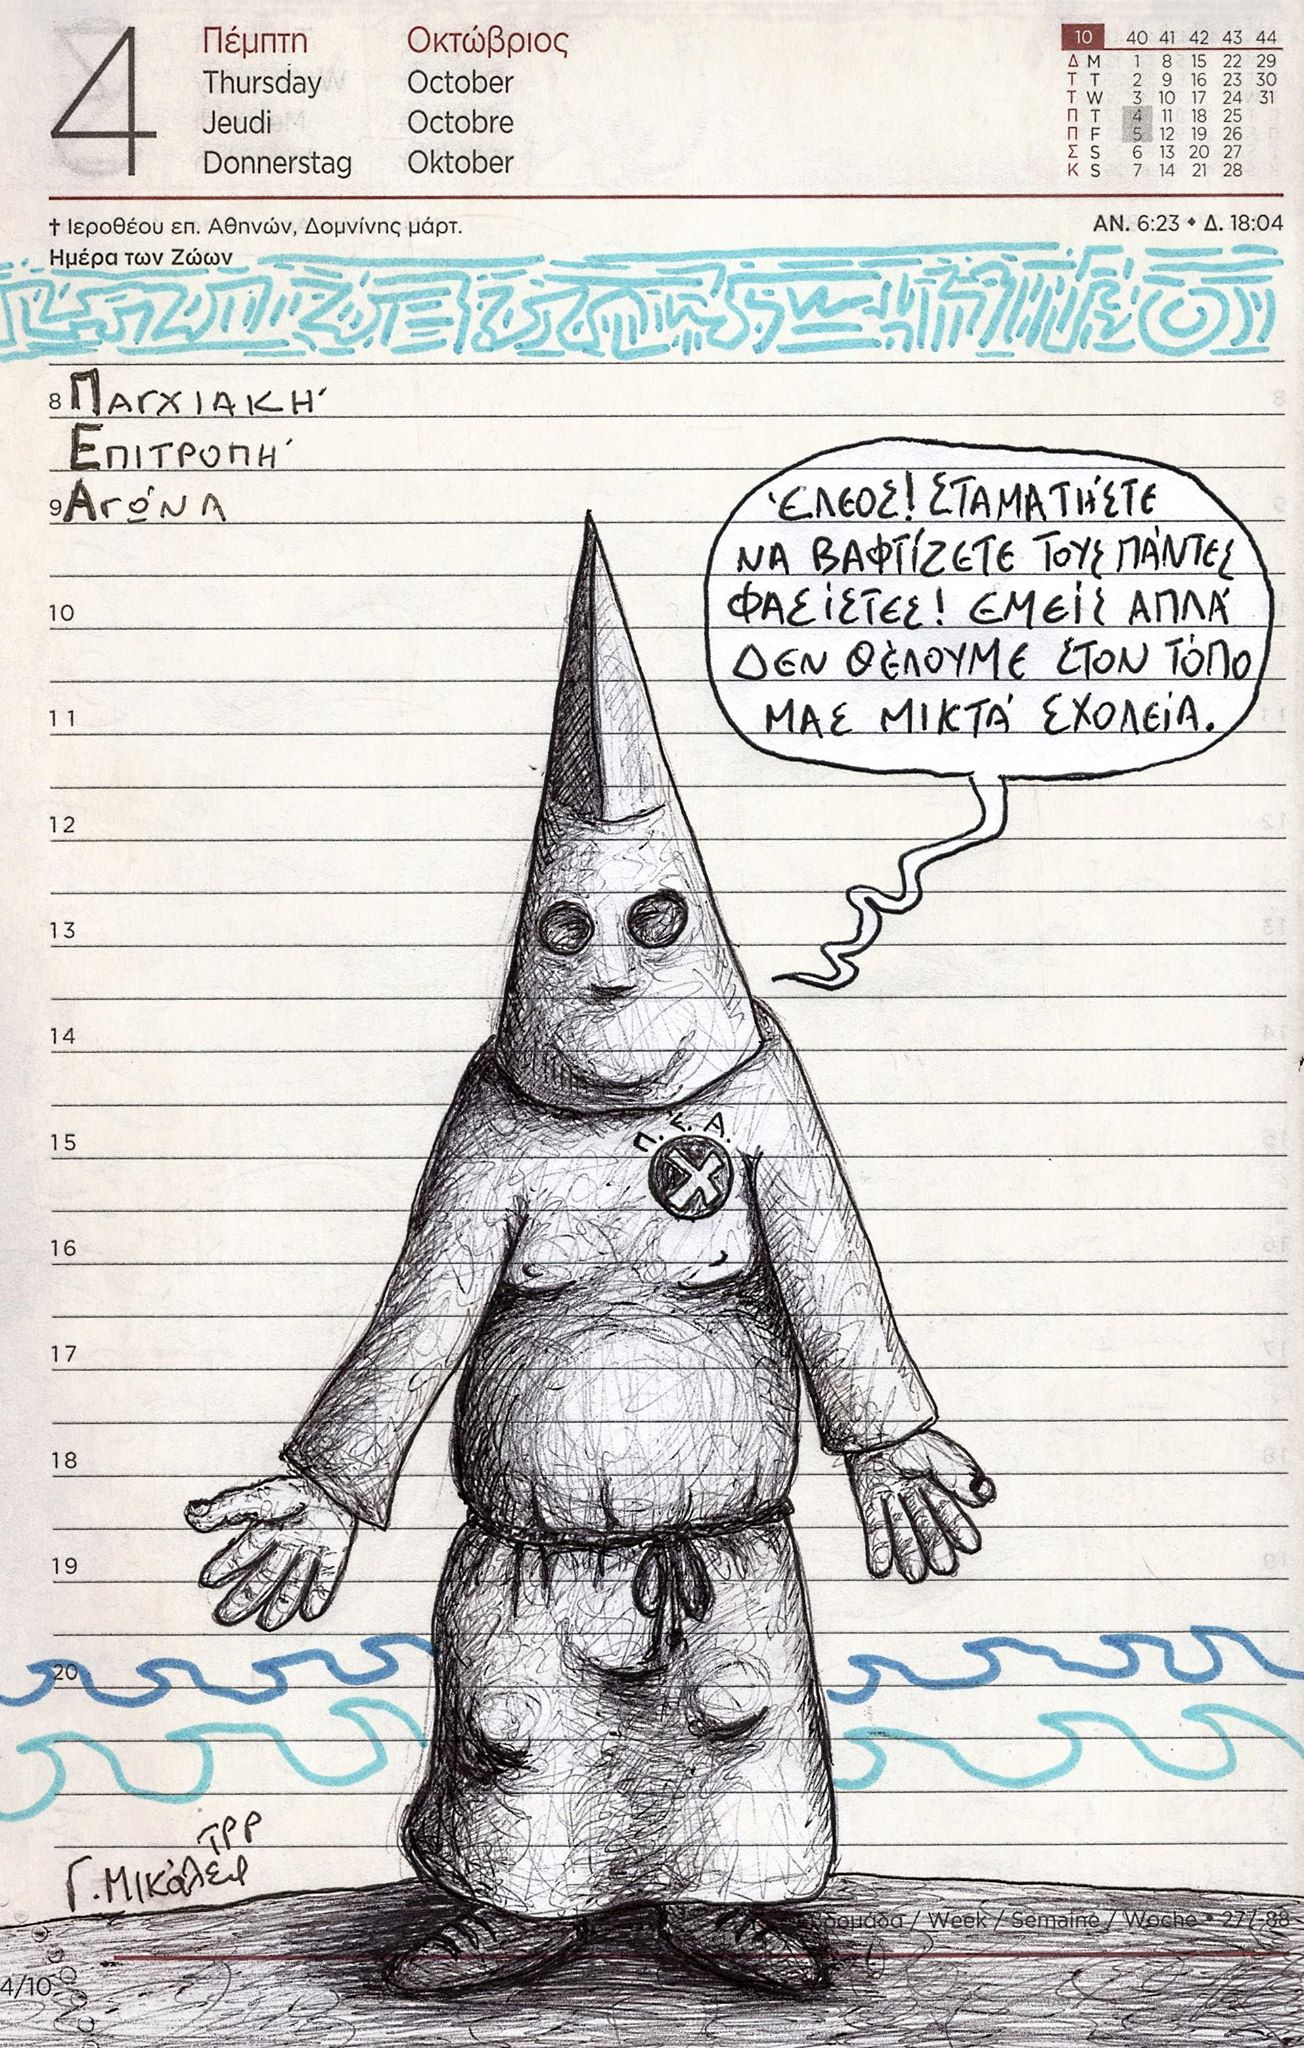 4
Πέμπτη Οκτώβριος
Thursday October
Jeudi Octobre
Donnerstag Oktober
10 40 41 42 43 44
Δ M 1 8 15 22 29
Τ T 2 9 16 23 30
Τ W 3 10 17 24 31
Π T 4 11 18 25
Π F 5 12 19 26
Σ S 6 13 20 27
Κ S 7 14 21 28
† Ιεροθέου επ. Αθηνών, Δομνίνης μάρτ.
ΑΝ. 6:23 • Δ. 18:04
Ημέρα των Ζώων
8 ΠΑΓΧΙΑΚΗ΄
ΕΠΙΤΡΟΠΗ΄
9 ΑΓΏΝΑ
ΈΛΕΟΣ! ΣΤΑΜΑΤΉΣΤΕ
ΝΑ ΒΑΦΤΊΖΕΤΕ ΤΟΥΣ ΠΆΝΤΕΣ
ΦΑΣΊΣΤΕΣ! ΕΜΕΊΣ ΑΠΛΆ
ΔΕΝ ΘΈΛΟΥΜΕ ΣΤΟΝ ΤΌΠΟ
ΜΑΣ ΜΙΚΤΆ ΣΧΟΛΕΊΑ.
10
11
12
13
14
Π.Ε.Α.
15
16
17
18
19
20
ΤΡΡ
Γ. Μικάλεφ
/ Week / Semaine / Woche • 277-88
4/10